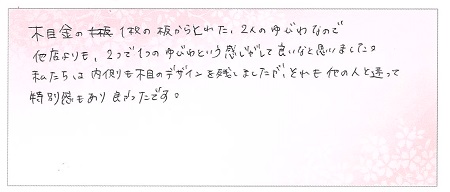 木目金の1枚の板からとれた、2人のゆびわなので
他店よりも、2つで1つのゆびわという感じがして良いなと思いました。
私たちは内側も木目のデザインを残しましたが、それも他の人と違って
特別感もあり良かったです。